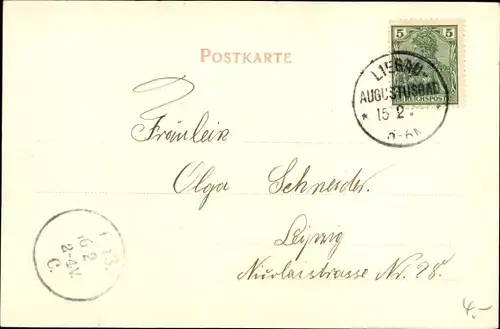 POSTKARTE
5
REICHSPOST
LIEGAU-
AUGUSTUSBAD
* 15 2. *
Fräulein
Olga Schneider.
Leipzig
Nicolaistrasse Nr. 28.
13.
16 2
2-4V.
C.
4.-